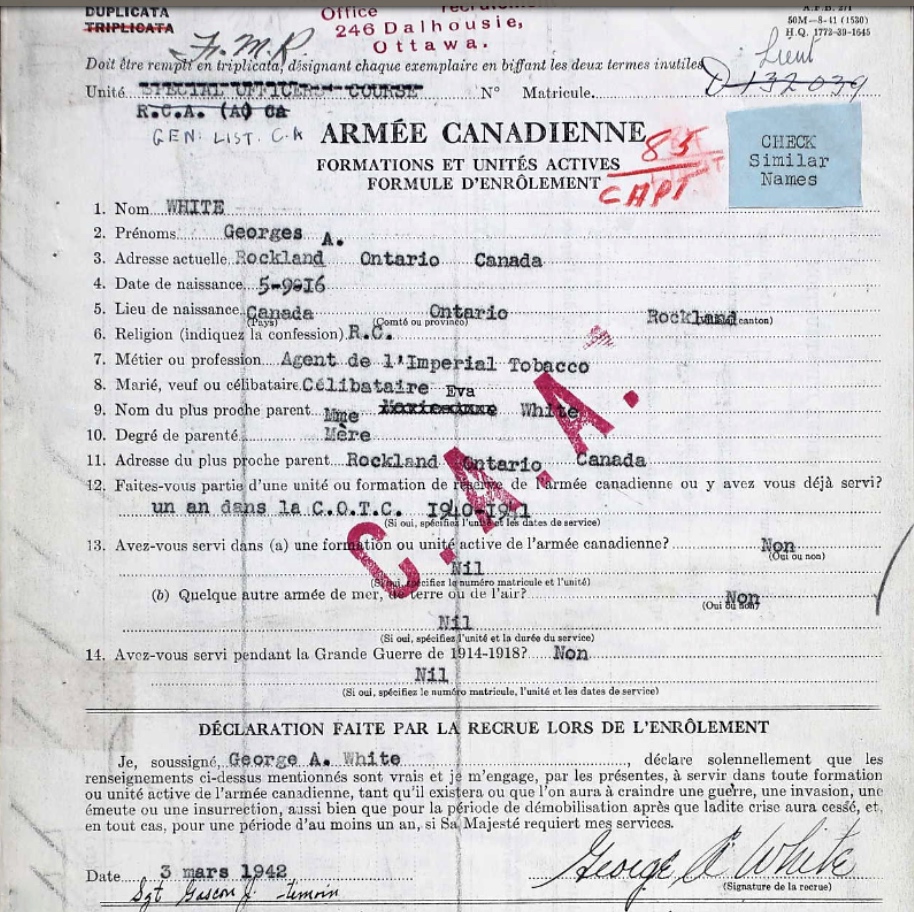 DUPLICATA
TRIPLICATA
Office
246 Dalhousie,
Ottawa.
50M-8-41 (1530)
H.Q. 1772-39-1645
Lieut
Doit être rempli en triplicata, désignant chaque exemplaire en biffant les deux termes inutiles
Unité SPECIAL OFFICERS COURSE N° Matricule. D 132039
R.C.A. (A) CA
GEN: LIST. C.A
ARMÉE CANADIENNE
FORMATIONS ET UNITÉS ACTIVES
FORMULE D'ENRÔLEMENT
85
CAPT
CHECK
Similar
Names
1. Nom WHITE
2. Prénoms Georges A.
3. Adresse actuelle Rockland Ontario Canada
4. Date de naissance 5-9-16
5. Lieu de naissance Canada Ontario Rockland
(Pays) (Comté ou province) canton)
6. Religion (indiquez la confession) R.C.
7. Métier ou profession Agent de l'Imperial Tobacco
8. Marié, veuf ou célibataire Célibataire
Eva
9. Nom du plus proche parent Mme White
10. Degré de parenté Mère
11. Adresse du plus proche parent Rockland Ontario Canada
12. Faites-vous partie d'une unité ou formation de réserve de l'armée canadienne ou y avez vous déjà servi?
un an dans la C.O.T.C. 1940-1941
(Si oui, spécifiez l'unité et les dates de service)
13. Avez-vous servi dans (a) une formation ou unité active de l'armée canadienne? Non
(Oui ou non)
Nil
(Si oui, spécifiez le numéro matricule et l'unité)
(b) Quelque autre armée de mer, de terre ou de l'air? Non
(Oui ou non)
Nil
(Si oui, spécifiez l'unité et la durée du service)
14. Avez-vous servi pendant la Grande Guerre de 1914-1918? Non
Nil
(Si oui, spécifiez le numéro matricule, l'unité et les dates de service)
C.A.A.
DÉCLARATION FAITE PAR LA RECRUE LORS DE L'ENRÔLEMENT
Je, soussigné, George A. White, déclare solennellement que les
renseignements ci-dessus mentionnés sont vrais et je m'engage, par les présentes, à servir dans toute formation
ou unité active de l'armée canadienne, tant qu'il existera ou que l'on aura à craindre une guerre, une invasion, une
émeute ou une insurrection, aussi bien que pour la période de démobilisation après que ladite crise aura cessé, et,
en tout cas, pour une période d'au moins un an, si Sa Majesté requiert mes services.
Date 3 mars 1942 George A White
(Signature de la recrue)
Sgt Gascon J. -témoin